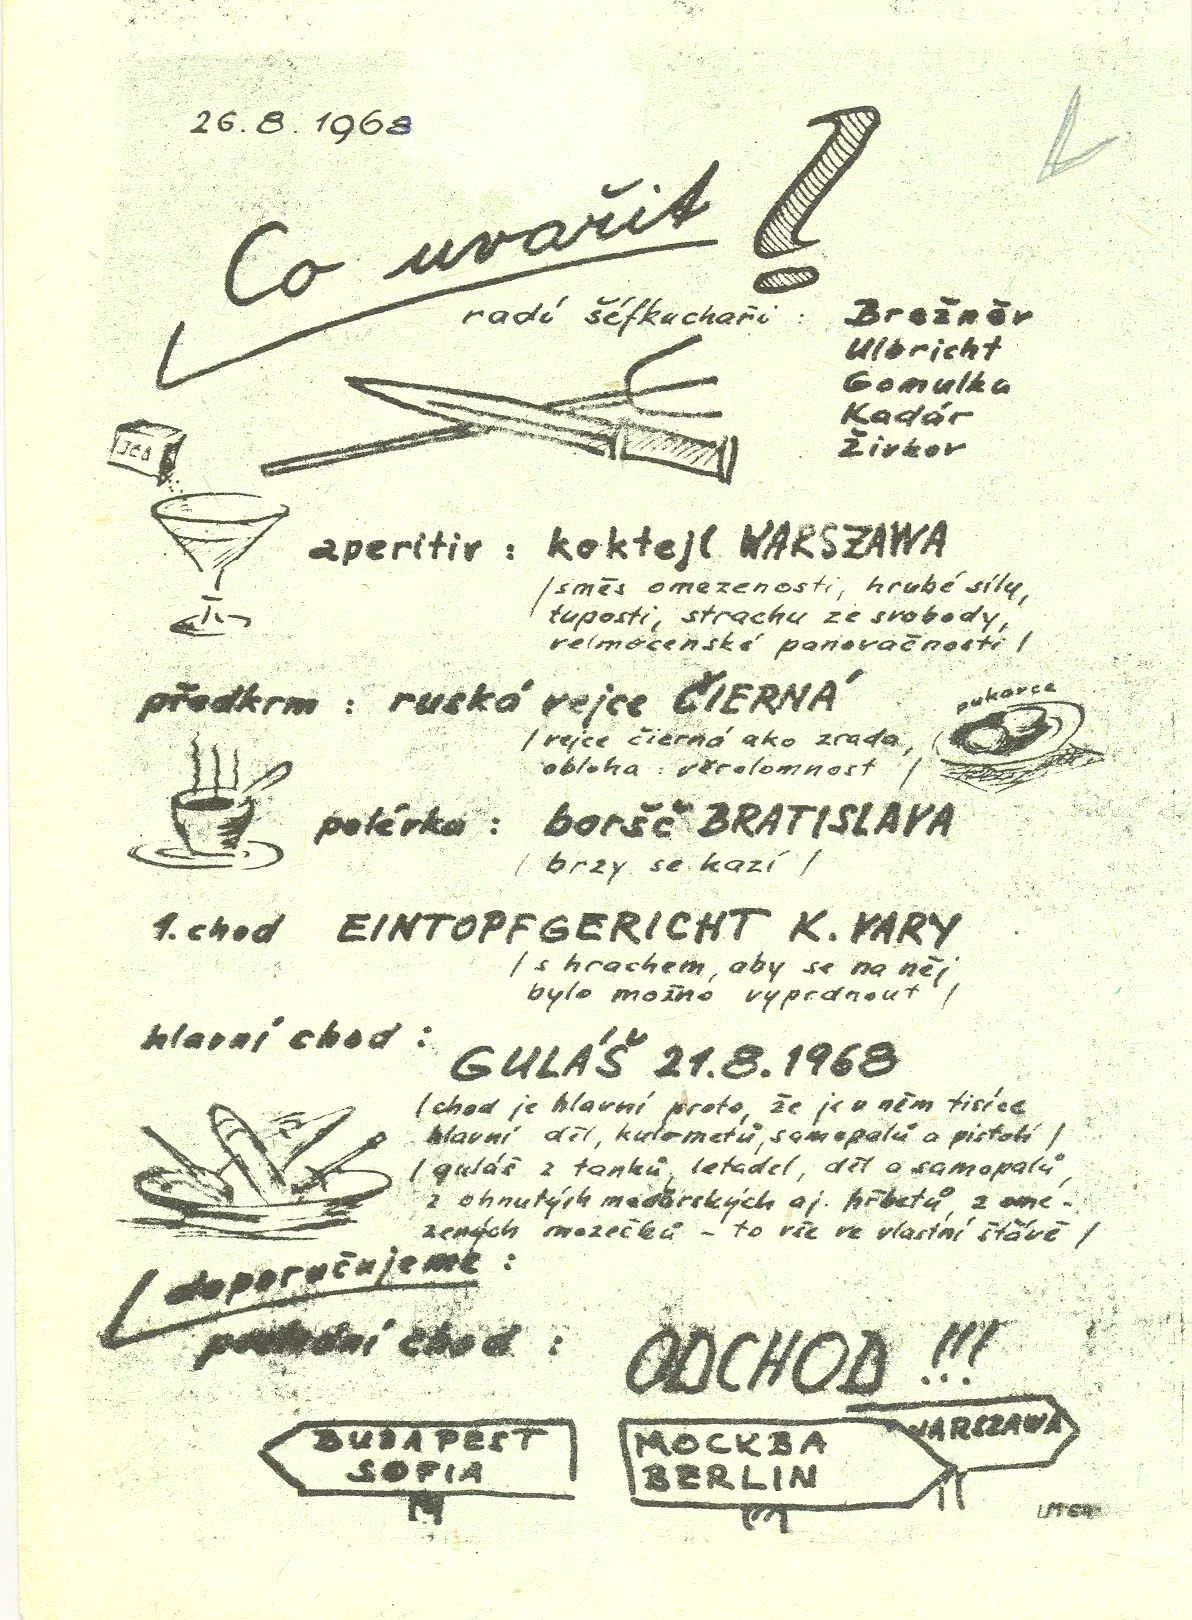 26.8.1968
Co uvařit !
radí šéfkuchaři : Brežněv
Ulbricht
Gomulka
Kadár
Živkov
JED
aperitiv : koktejl WARSZAWA
/směs omezenosti, hrubé síly,
tuposti, strachu ze svobody,
velmocenské panovačnosti/
předkrm : ruská vejce ČIERNÁ
pukavce
/vejce čierná ako zrada,
obloha : věrolomnost /
polévka : boršč BRATISLAVA
/ brzy se kazí /
1. chod EINTOPFGERICHT K. VARY
/s hrachem, aby se na něj
bylo možno vyprdnout /
hlavní chod :
GULÁŠ 21.8.1968
/chod je hlavní proto, že je v něm tisíce
hlavní děl, kulometů, samopalů a pistolí /
/guláš z tanků, letadel, děl a samopalů,
z ohnutých maďarských aj. hřbetů, z ome-
zených mozečků – to vše ve vlastní šťávě /
doporučujeme :
poslední chod : ODCHOD !!!
BUDAPEST
SOFIA
MOCKBA
BERLIN
WARSZAWA